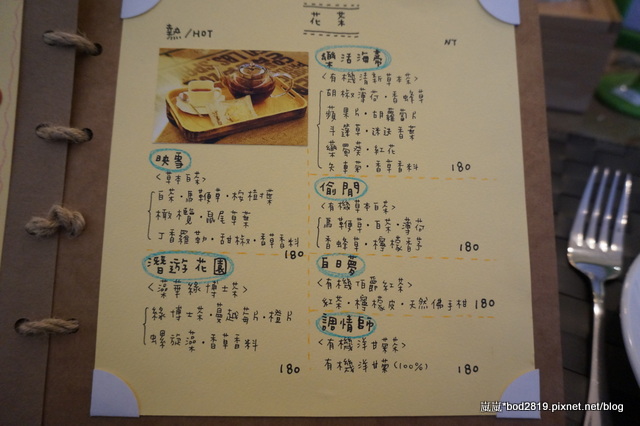 花菜
熱/HOT
NT
樂活海喬
<有機清新草本茶>
胡椒薄荷・香蜂草
蘋果片・胡蘿蔔片
迷迭香葉
紅花
矢車菊・香草香料
180
映雪
<草本白茶>
白茶・馬鞭草・檸檬葉
橄欖・鼠尾草葉
丁香羅勒・甜椒・香草香料
180
偷閒
<有機草本白茶>
馬鞭草・白茶・薄荷
香蜂草・檸檬香茅
180
潛遊花園
<藻葉綠博士茶>
綠博士茶・蔓越莓片・橙片
螺旋藻・香草香料
180
白日夢
<有機伯爵紅茶>
紅茶・檸檬皮・天然佛手柑 180
調情師
<有機洋甘菊茶>
有機洋甘菊(100%) 180
嵐嵐*bod2819.pixnet.net/blog